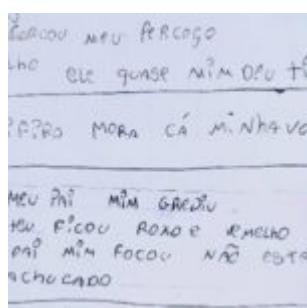 FORCOU MEU PERCOÇO
ELE QUASE MIM DEU
MORA CÁ MINHA VO
MEU PAI MIM GREDIU
FICOU ROXO E VEMELHO
PAI MIM FOCOU NÃO ESTA
ACHUCADO